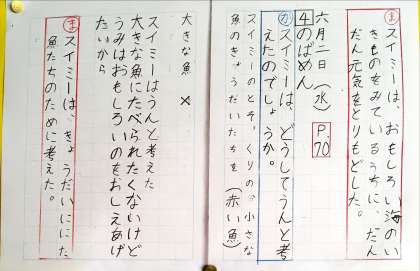 ま スイミーは、おもしろい海のい
きものをみているうちに、だん
だん元気をとりもどした。
六月二日(水) P.70
4のばめん
か スイミーは、どうしてうんと考
えたのでしょうか。
スイミーのとそっくりの小さな
魚のきょうだいたちを(赤い魚)
大きな魚 ×
スイミーはうんと考えた
大きな魚にたべられたくないけど
うみはおもしろいのをおしえあげ
たいから
ま スイミーは、きょうだいにに た
魚たちのために考えた。